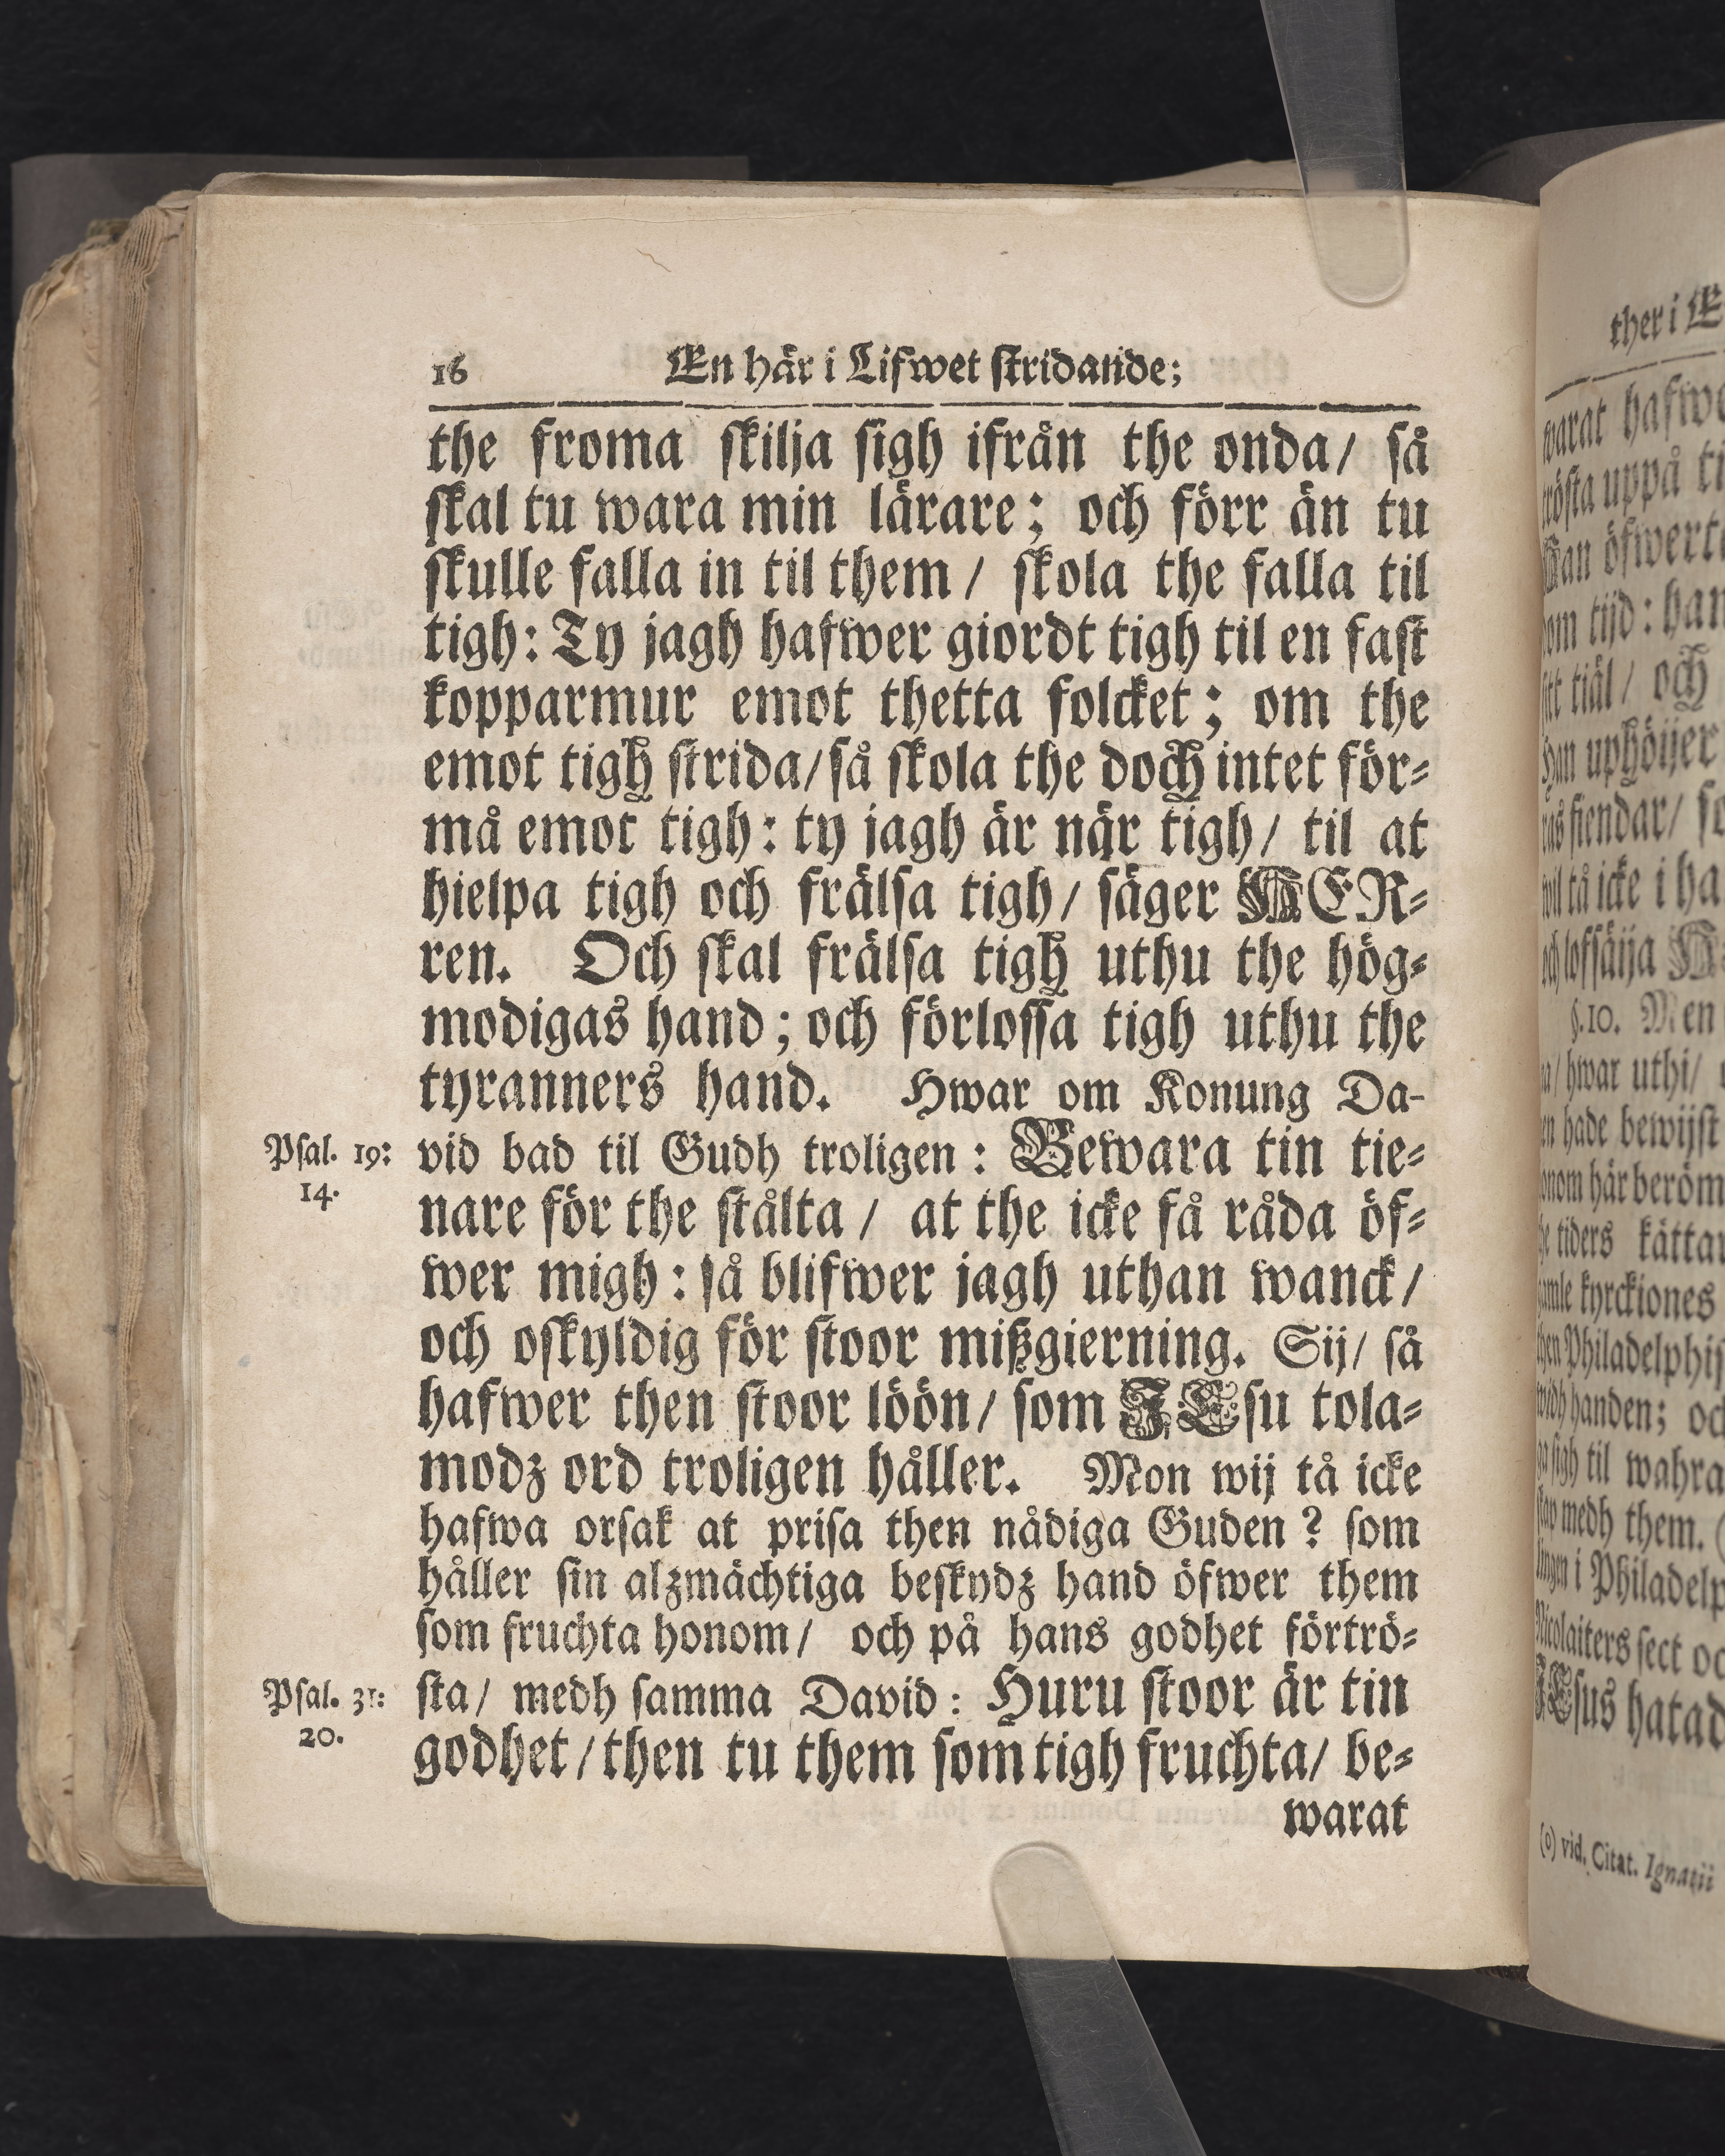 16 En här i Lifwet stridande;
the froma skilja sigh ifrån the onda/ så
skal tu wara min lärare; och förr än tu
skulle falla in til them/ skola the falla til
tigh: Ty jagh hafwer giordt tigh til en fast
kopparmur emot thetta folcket; om the
emot tigh strida/ så skola the doch intet för-
må emot tigh: ty jagh är när tigh/ til at
hielpa tigh och frälsa tigh/ säger HER-
ren. Och skal frälsa tigh uthu the hög-
modigas hand; och förlossa tigh uthu the
tyranners hand. Hwar om Konung Da-
Psal. 19: vid bad til Gudh troligen: Bewara tin tie-
14. nare för the stålta/ at the icke få råda öf-
wer migh: så blifwer jagh uthan wanck/
och oskyldig för stoor mißgierning. Sij/ så
hafwer then stoor löön/ som JEsu tola-
modz ord troligen håller. Mon wij tå icke
hafwa orsak at prisa then nådiga Guden? som
håller sin alzmächtiga beskydz hand öfwer them
som fruchta honom/ och på hans godhet förtrö-
Psal. 31: sta/ medh samma David: Huru stoor är tin
20. godhet/ then tu them som tigh fruchta/ be-
warat
ther i
warat
uppå
öfwert
tijd:
tiäl/ och
uphöijer
fiendar/
tå icke i
lofsäija
§.10. Men
hwar uthi/
hade bewijst
här beröm
tiders
kyrckiones
handen;
sigh til wahra
medh them.
i
sect
JEsus
(o) vid. Citat. Ignatii